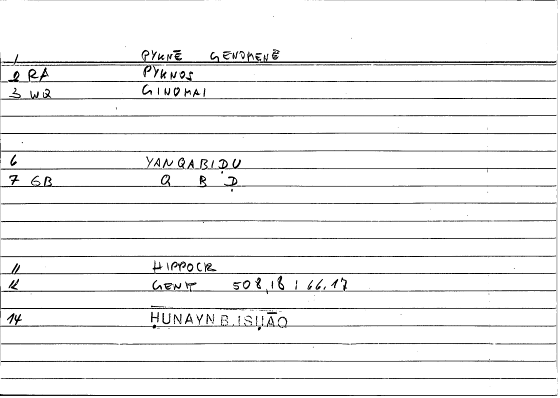 1 PYKNĒ GENOMENĒ
2 RA PYKNOS
3 WQ GINOMAI
6 YANQABIḌU
7 GB Q B Ḍ
11 HIPPOCR
12 GENIT 508,18 : 66,17
14 ḤUNAYN B.ISḤĀQ